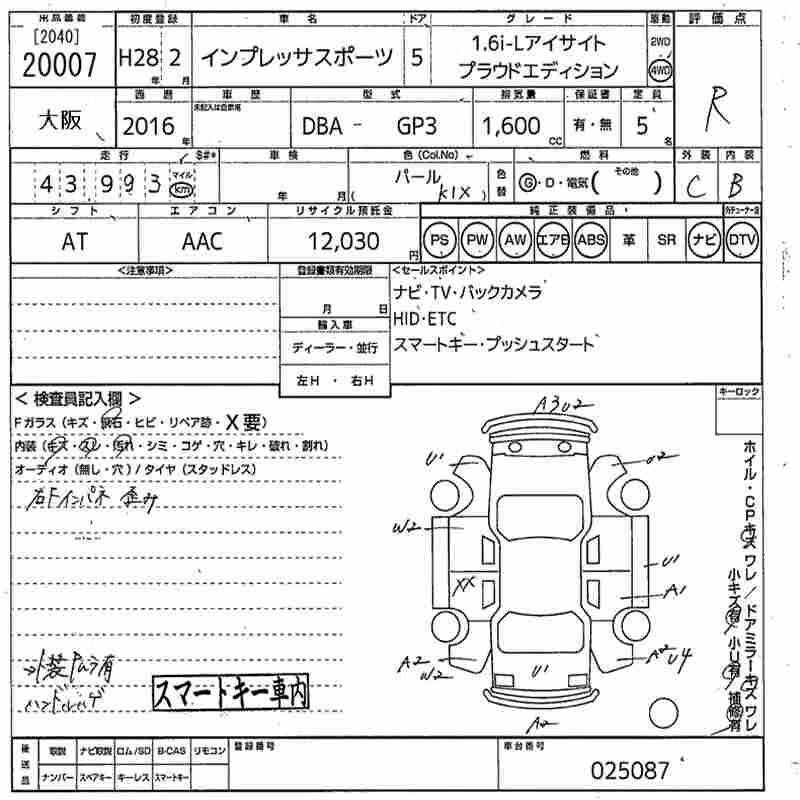 出品番号 初度登録 車名 ドア グレード 駆動 評価点
[2040] 20007 H28年 2月 インプレッサスポーツ 5 1.6i-Lアイサイト 2WD R
プラウドエディション 4WD
西暦 車歴 型式 排気量 保証書 定員
未記入は自家用
大阪 2016年 DBA - GP3 1,600cc 有・無 5名
走行 $#* 車検 色(Col.No) 燃料 外装 内装
43993 マイル km 年 月 パール (K1X) 色替 G・D・電気( その他 ) C B
シフト エアコン リサイクル預託金 純正装備品
AT AAC 12,030円 PS PW AW エアB ABS 革 SR ナビ DTV
<注意事項> 登録書類有効期限 <セールスポイント>
月 日
ナビ・TV・バックカメラ
HID・ETC
スマートキー・プッシュスタート
輸入車
ディーラー・並行
左H ・ 右H
<検査員記入欄> キーロック
Fガラス(キズ・飛石・ヒビ・リペア跡・X要)
内装(キズ・スレ・汚れ・シミ・コゲ・穴・キレ・破れ・割れ)
オーディオ(無し・穴)/タイヤ(スタッドレス)
右Fインパネ 歪み
A3U2
U1 U2
W2
U1
XX A1
A2 W2
U1
A2 U4
A2
ホイル・CPキズ ワレ/ドアミラーキズ ワレ
小キズ有 小U有 補修有
スマートキー車内
後送品 取説 ナビ取説 ロム/SD B-CAS リモコン 登録番号 車台番号
ナンバー スペアキー キーレス スマートキー 025087